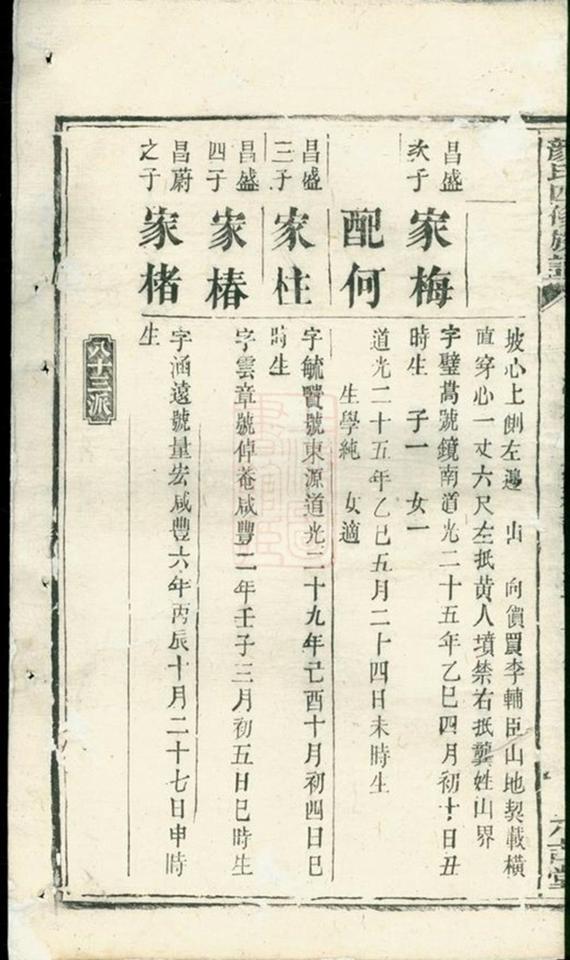 坡心上側左邊 山 向價買李輔臣山地契載橫
直穿心一丈六尺左抵黃人墳禁右抵龔姓山界
昌盛次子
家梅
字璧萬號鏡南道光二十五年乙巳四月初十日丑
時生 子一 女一
配何
道光二十五年乙巳五月二十四日未時生
生學純 女適
昌盛三子
家柱
字毓賢號東源道光二十九年己酉十月初四日巳
時生
昌盛四子
家椿
字雲章號倬菴咸豐二年壬子三月初五日巳時生
昌蔚之子
家楮
字涵遠號量宏咸豐六年丙辰十月二十七日申時
生
八十三派